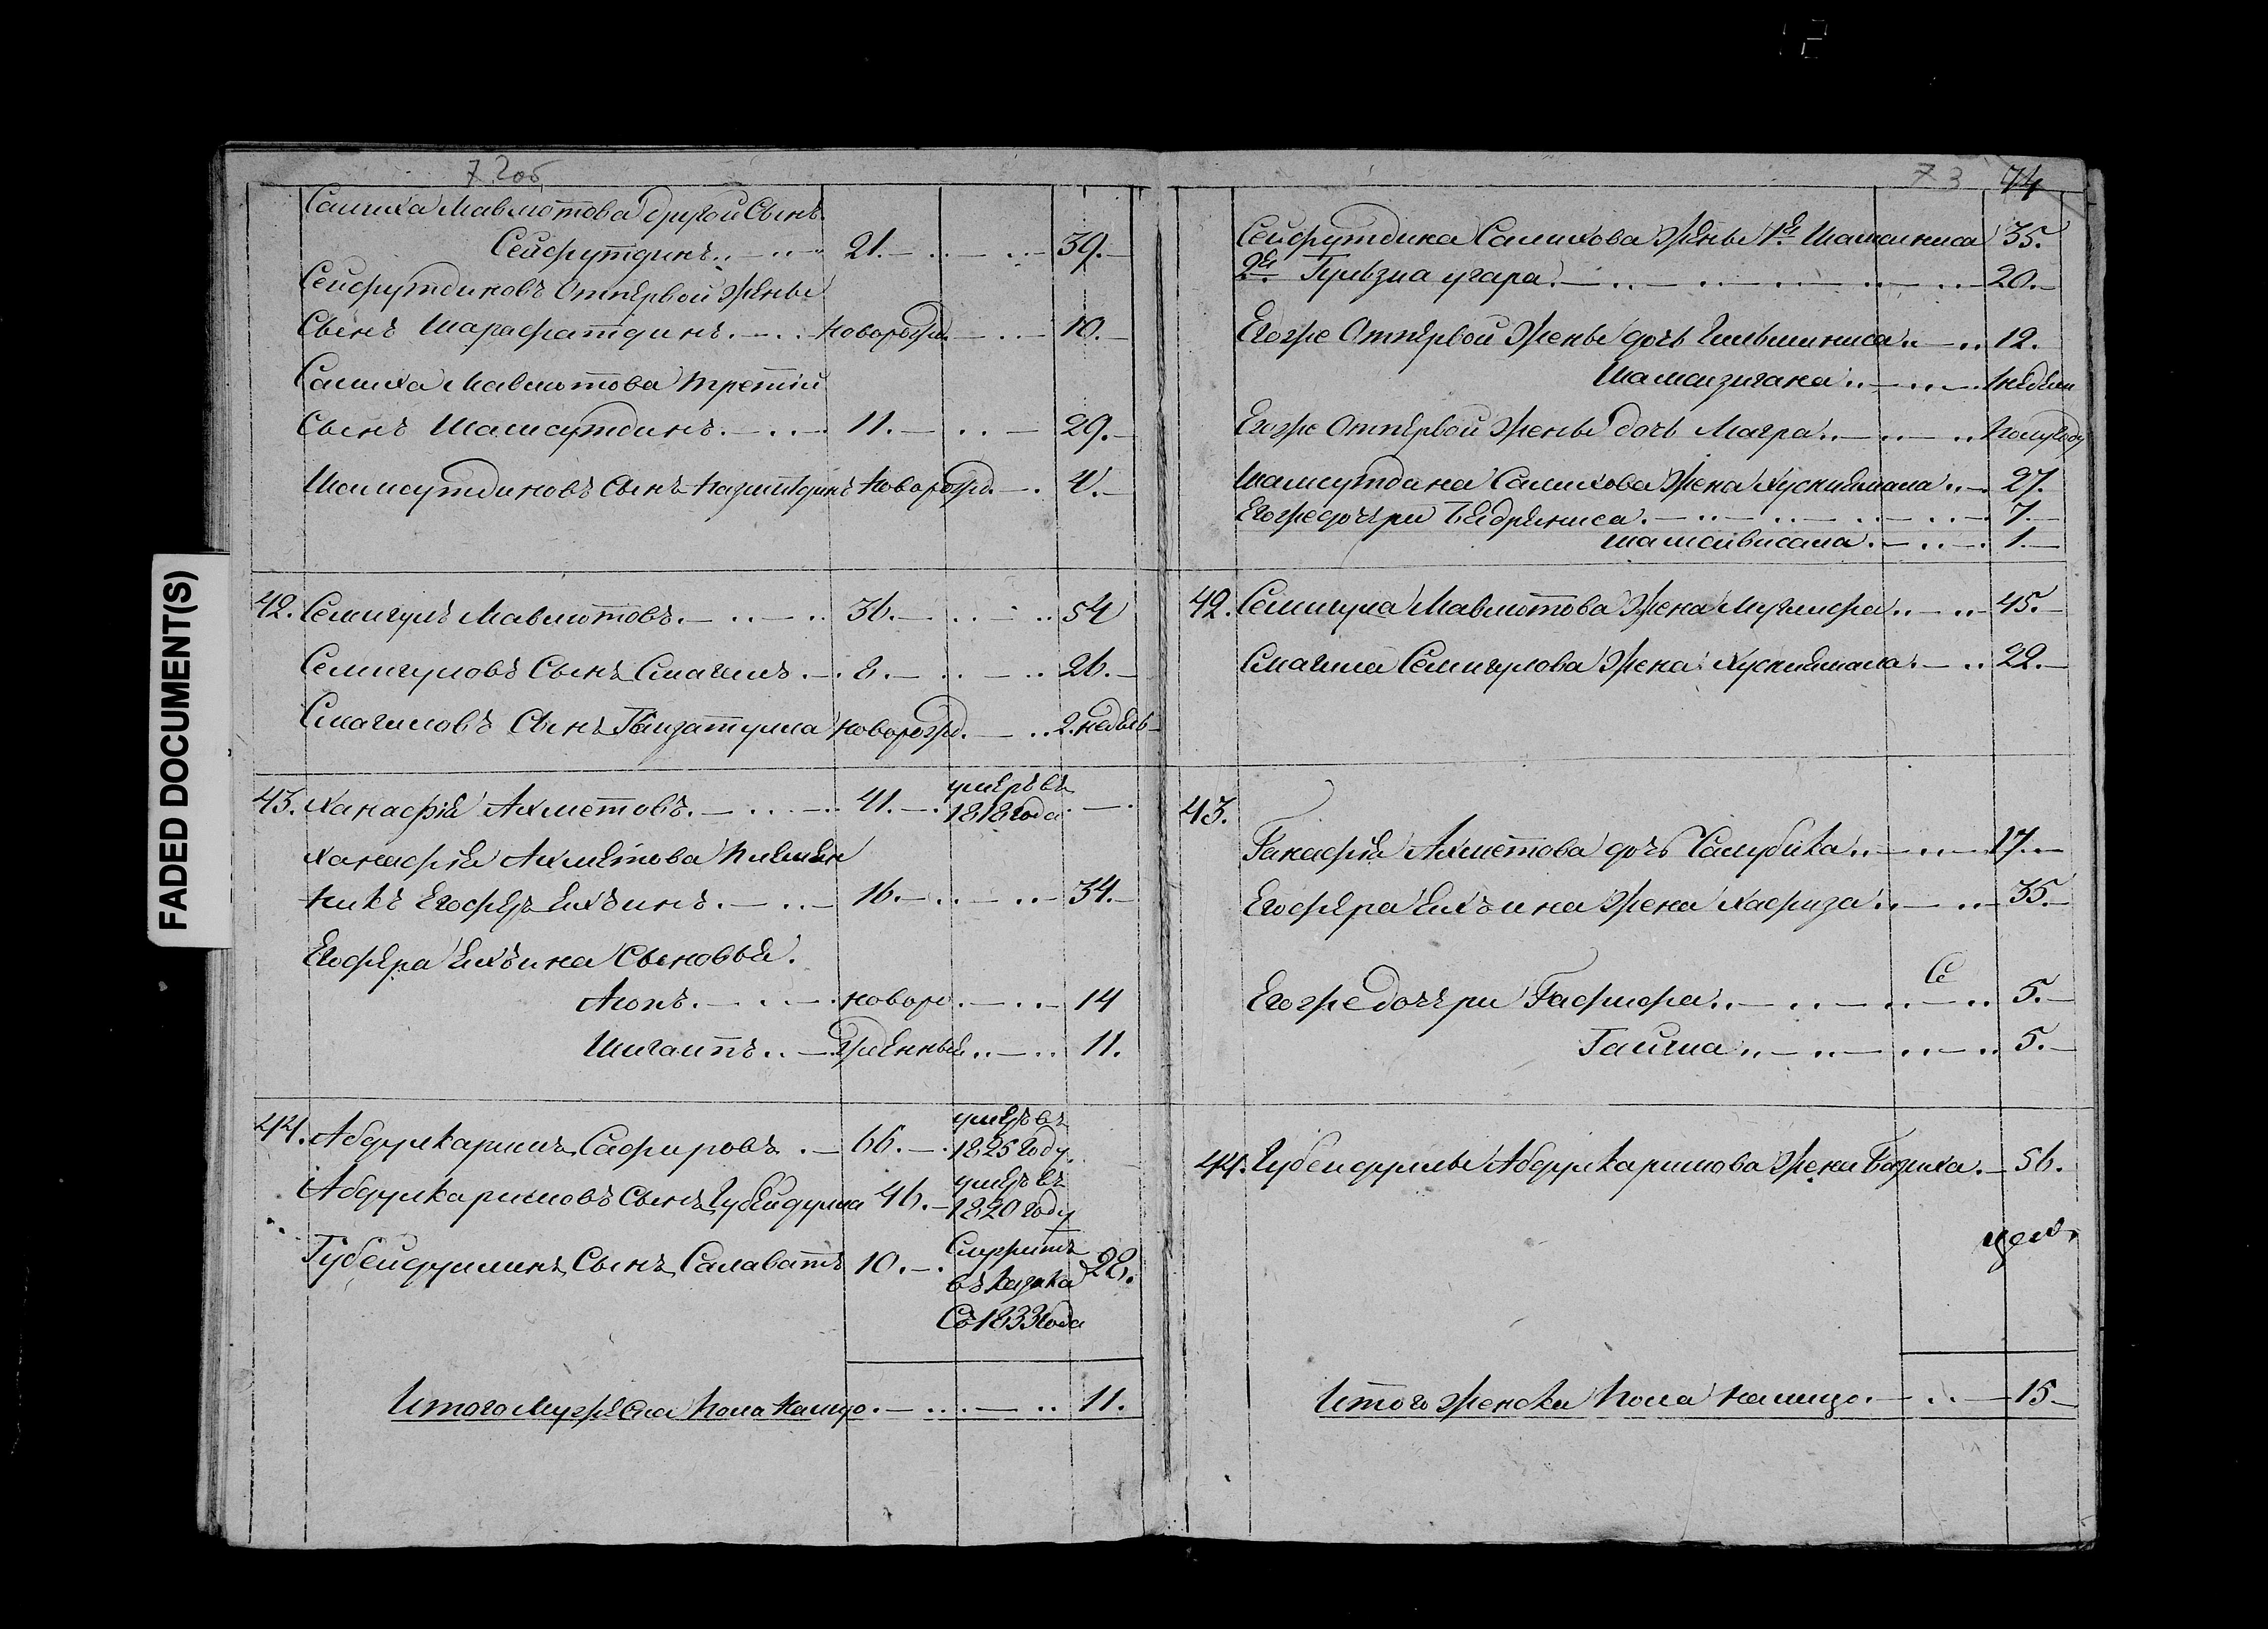 FADED DOCUMENT(S)
72об.
Салиха Мавлютова другой Сынъ
Сейфутдинъ 21. 39.
Сейфутдиновъ Отпервой жены
Сынъ Шарафатдинъ новорожд. 10.
Салиха Мавлютова третiй
Сынъ Шамсутдинъ 11. 29.
Шамсутдиновъ Сынъ новорожд. 4.
42. Селигулъ Мавлютовъ 36. 54
Селигуловъ Сынъ Смагилъ 8. 26.
Смагиловъ Сынъ Гайзатулла новорожд. 2. недель
43. Ханафiя Ахметовъ 41. умеръ въ 1818 года
Ханафiя Ахметова племян
никъ Егоферъ Елхинъ 16. 34.
Егофера Елхина Сыновья.
Аюпъ новоро 14
Шигаипъ жденные 11.
44. Абдулкаримъ Сафировъ 66. умеръ въ 1825 году.
Абдулкаримовъ Сынъ Губейдулла 46. умеръ въ 1820 году
Губейдуллинъ Сынъ Салаватъ 10. Служитъ 28.
въ казака
Съ 1833 года
Итого мужеска пола налицо 11.
73 74
Сейфутдина Салихова жены 1я Шамсиниса 35.
2я 20.
Егоже Отпервой жены дочь Гильминиса 12.
Шамсизигана 1 недели
Егоже Отпервой жены дочь Магра полугоду
Шамсутдина Салихова жена Хусниямала 27.
Егоже дочери Бедряниса 7.
1.
42. Селигула Мавлютова жена Муглифа 45.
Смагила Селигулова жена Хусниямала 22.
43.
Ганафiя Ахметова дочь 17.
Егофера Елхина жена Хафиза 35.
Егоже дочери Гафифа 5.
Гайша 5.
44. Губейдуллы Абдулкаримова жена 56.
Итого женска пола налицо 15